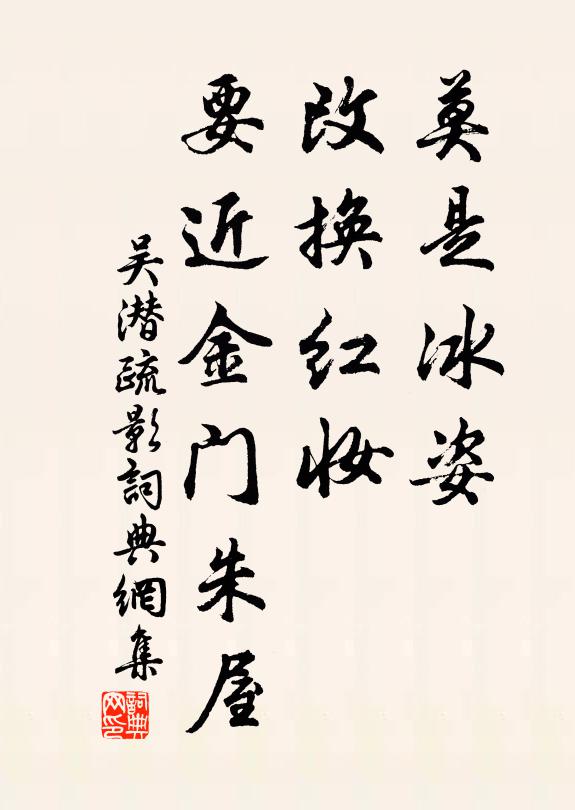 莫是冰姿
改换红妆
要近金门朱屋
吴潜疏影詞典網集
詞典
网印